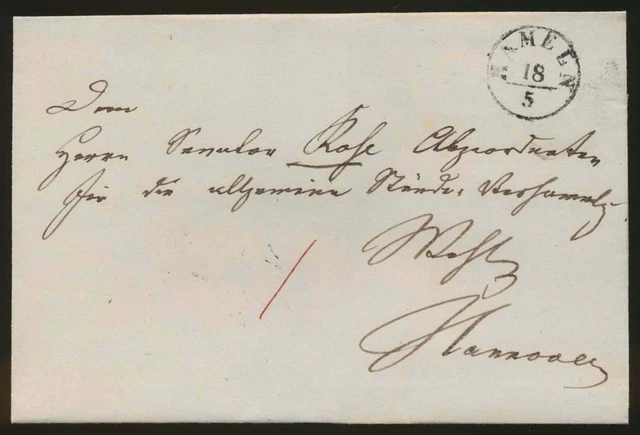 HAMELN
18
5
Dem
Herrn Senator Rose Abgeordneten
für die allgemeine Stände-Versamlg
Hannover